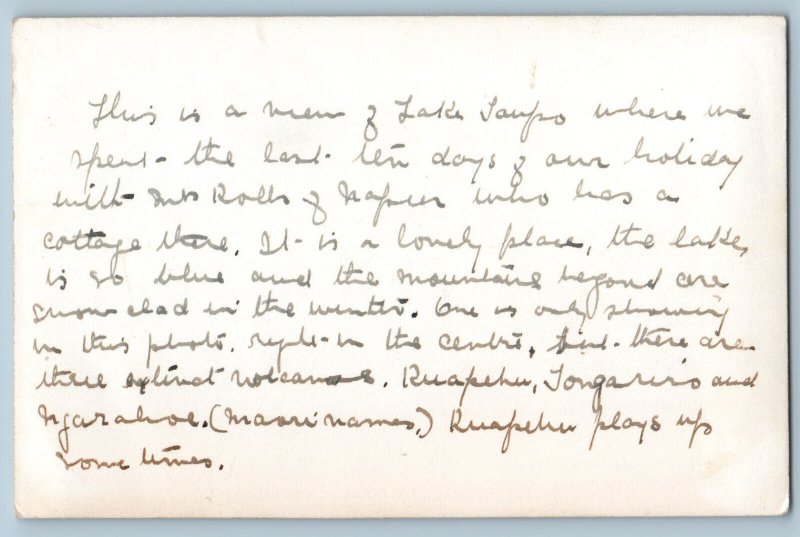 This is a view of Lake Taupo where we
spent the last ten days of our holiday
with Mrs Rolls of Napier who has a
cottage there. It is a lovely place, the lake,
is so blue and the mountains beyond are
snow clad in the winter. One is only showing
in this photo. right in the centre, but there are
three extinct volcanoes. Ruapehu, Tongariro and
Ngarahoe. (Maori names.) Ruapehu plays up
some times.